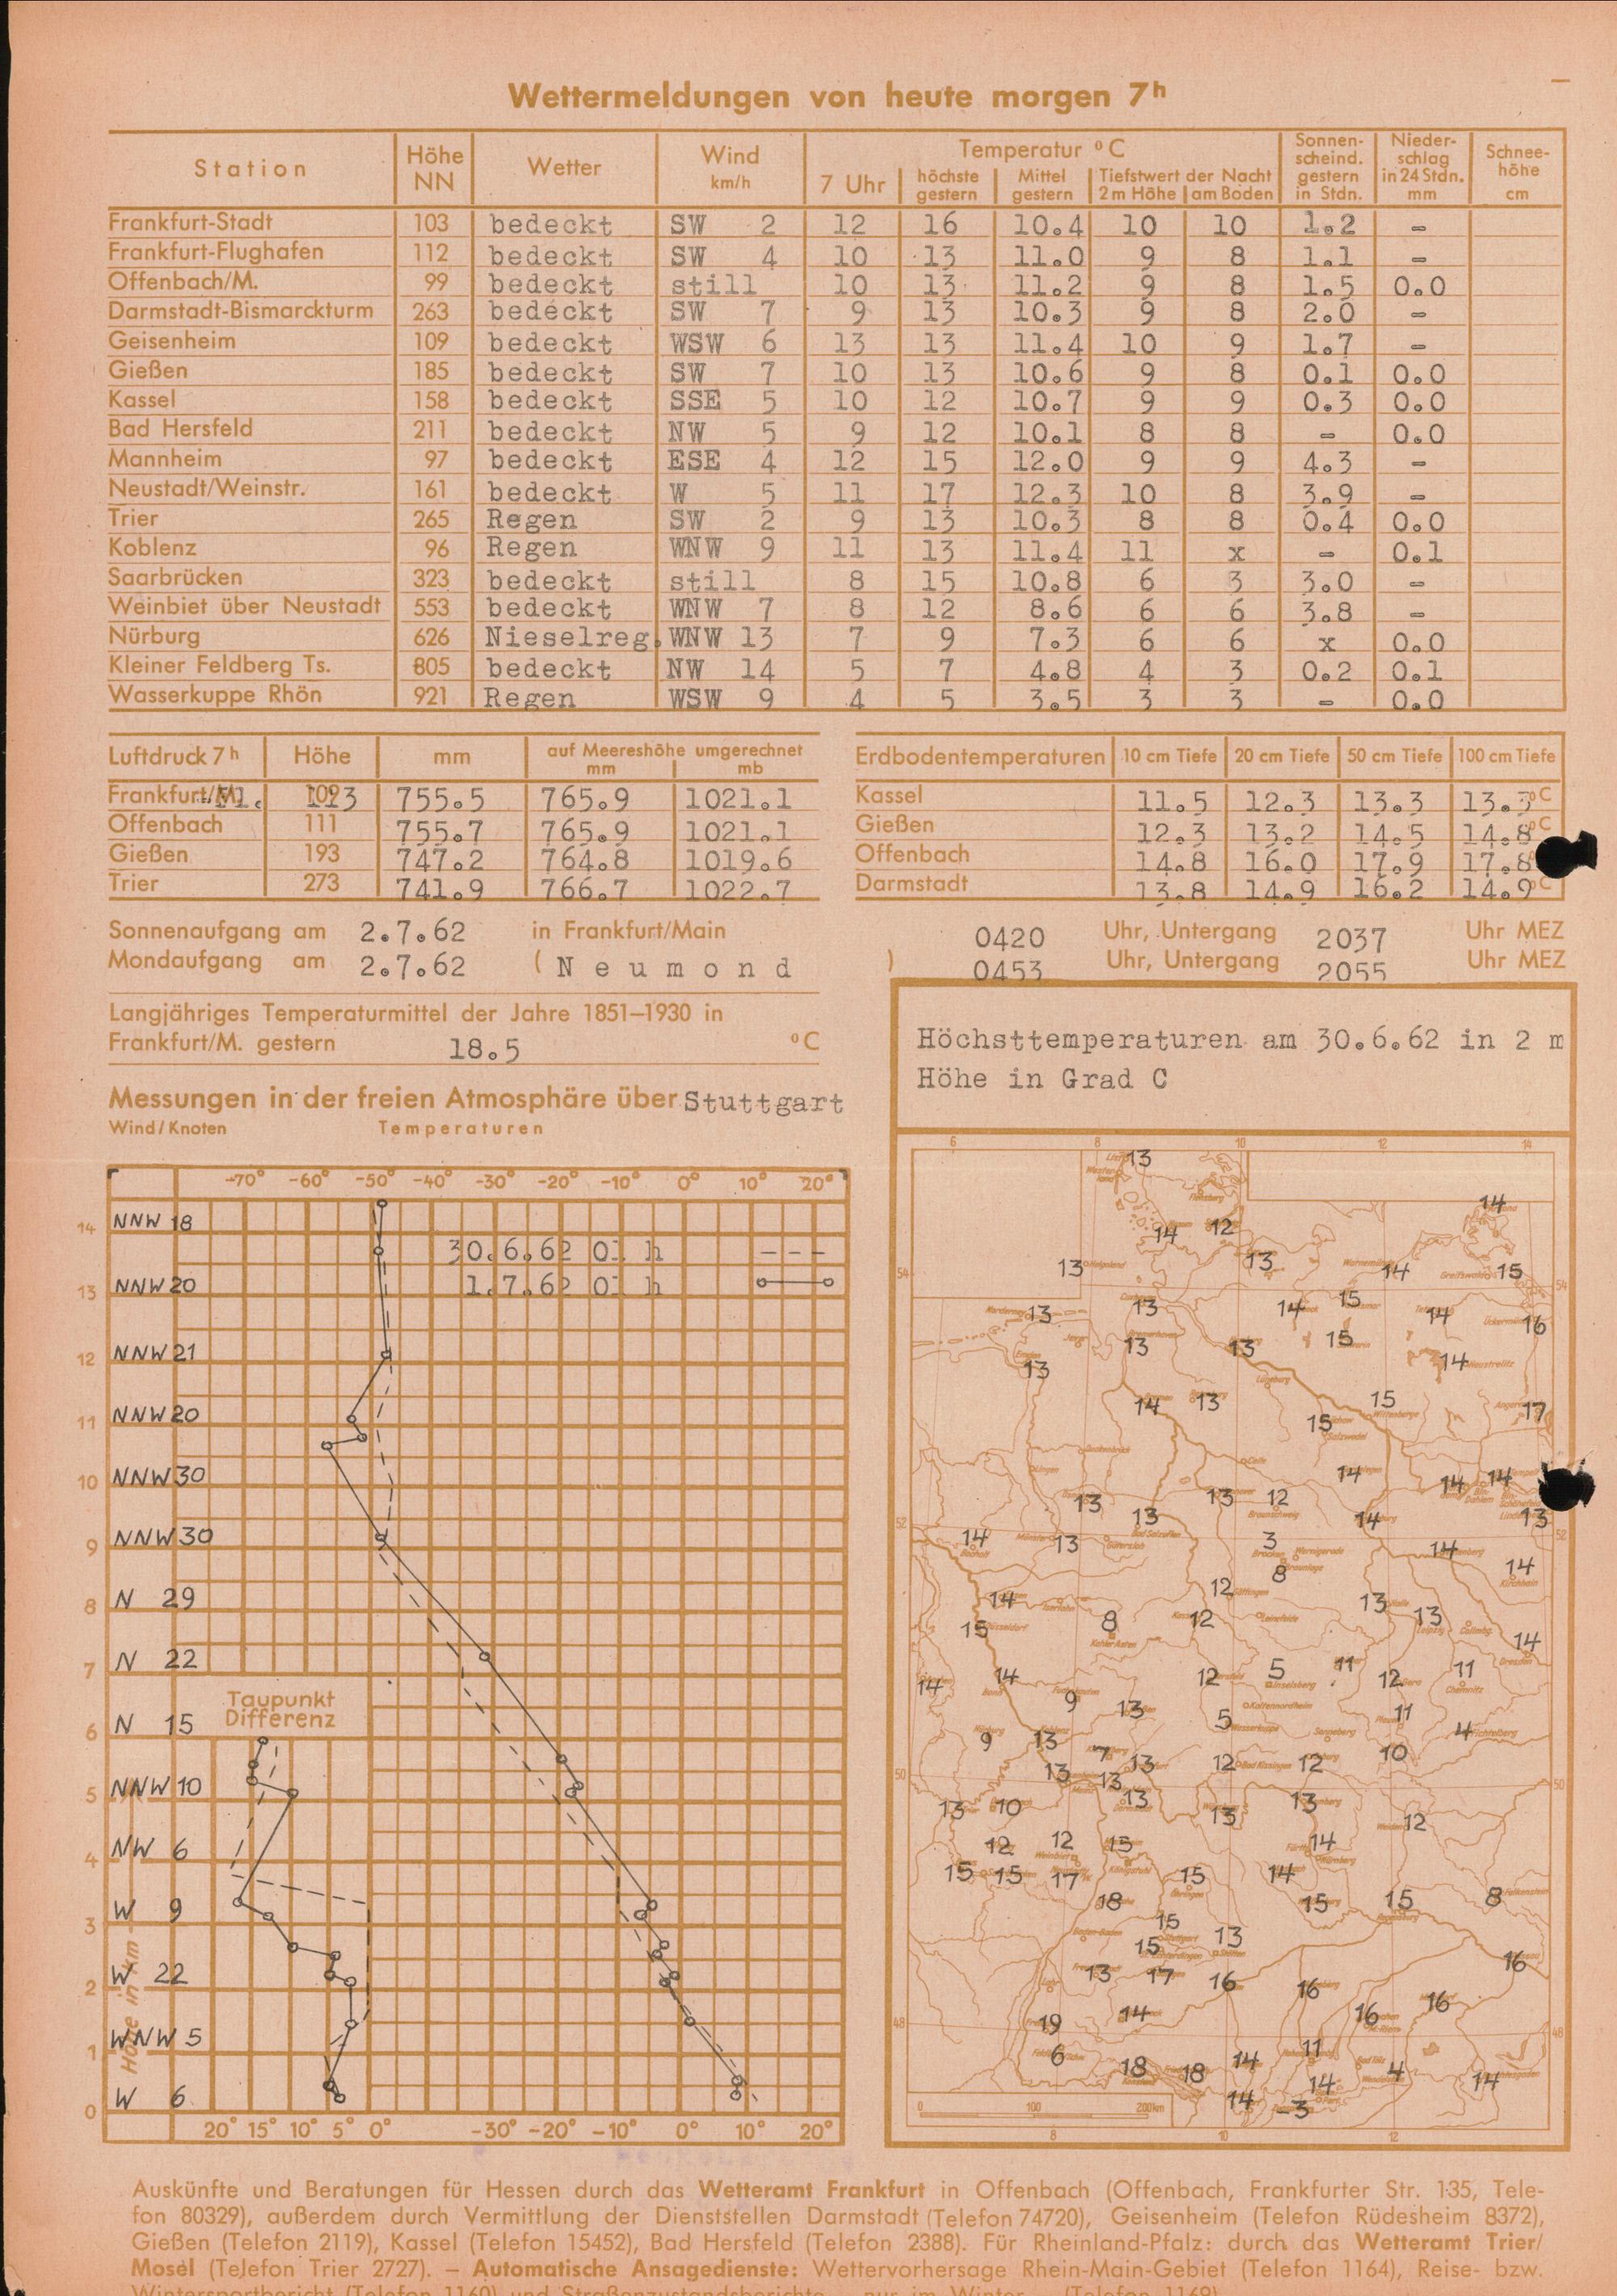 Wettermeldungen von heute morgen 7h
Station Höhe NN Wetter Wind km/h Temperatur °C Sonnenscheind. gestern in Stdn. Niederschlag in 24 Stdn. mm Schneehöhe cm
7 Uhr höchste gestern Mittel gestern Tiefstwert der Nacht 2 m Höhe am Boden
Frankfurt-Stadt 103 bedeckt SW 2 12 16 10.4 10 10 1.2 -
Frankfurt-Flughafen 112 bedeckt SW 4 10 13 11.0 9 8 1.1 -
Offenbach/M. 99 bedeckt still 10 13 11.2 9 8 1.5 0.0
Darmstadt-Bismarckturm 263 bedeckt SW 7 9 13 10.3 9 8 2.0 -
Geisenheim 109 bedeckt WSW 6 13 13 11.4 10 9 1.7 -
Gießen 185 bedeckt SW 7 10 13 10.6 9 8 0.1 0.0
Kassel 158 bedeckt SSE 5 10 12 10.7 9 9 0.3 0.0
Bad Hersfeld 211 bedeckt NW 5 9 12 10.1 8 8 - 0.0
Mannheim 97 bedeckt ESE 4 12 15 12.0 9 9 4.3 -
Neustadt/Weinstr. 161 bedeckt W 5 11 17 12.3 10 8 3.9 -
Trier 265 Regen SW 2 9 13 10.3 8 8 0.4 0.0
Koblenz 96 Regen WNW 9 11 13 11.4 11 x - 0.1
Saarbrücken 323 bedeckt still 8 15 10.8 6 3 3.0 -
Weinbiet über Neustadt 553 bedeckt WNW 7 8 12 8.6 6 6 3.8 -
Nürburg 626 Nieselreg. WNW 13 7 9 7.3 6 6 x 0.0
Kleiner Feldberg Ts. 805 bedeckt NW 14 5 7 4.8 4 3 0.2 0.1
Wasserkuppe Rhön 921 Regen WSW 9 4 5 3.5 3 3 - 0.0
Luftdruck 7h Höhe mm auf Meereshöhe umgerechnet mm mb
Frankfurt/M. 113 755.5 765.9 1021.1
Offenbach 111 755.7 765.9 1021.1
Gießen 193 747.2 764.8 1019.6
Trier 273 741.9 766.7 1022.7
Erdbodentemperaturen 10 cm Tiefe 20 cm Tiefe 50 cm Tiefe 100 cm Tiefe
Kassel 11.5 12.3 13.3 13.3 °C
Gießen 12.3 13.2 14.5 14.8 °C
Offenbach 14.8 16.0 17.9 17.8
Darmstadt 13.8 14.9 16.2 14.9 °C
Sonnenaufgang am 2.7.62 in Frankfurt/Main 0420 Uhr, Untergang 2037 Uhr MEZ
Mondaufgang am 2.7.62 ( Neumond ) 0453 Uhr, Untergang 2055 Uhr MEZ
Langjähriges Temperaturmittel der Jahre 1851–1930 in
Frankfurt/M. gestern 18.5 °C
Messungen in der freien Atmosphäre über Stuttgart
Wind/Knoten Temperaturen
-70° -60° -50° -40° -30° -20° -10° 0° 10° 20°
14 NNW 18
30.6.62 01 h - - -
1.7.62 01 h
13 NNW 20
12 NNW 21
11 NNW 20
10 NNW 30
9 NNW 30
8 N 29
7 N 22
Taupunkt
Differenz
6 N 15
5 NNW 10
4 NW 6
3 W 9
2 W 22
1 WNW 5
0 W 6
Höhe in km
20° 15° 10° 5° 0° -30° -20° -10° 0° 10° 20°
Höchsttemperaturen am 30.6.62 in 2 m
Höhe in Grad C
6 8 10 12 14
13
14
14 12
13 13 14 15
54 54
13 13 14 15 14 16
13 13 15 14
13
14 13 15 15 17
14 14 14
13 13 12
13 14 13
52 52
14 13 3 14
8 14
14 12 13 13
15 8 12 14
14 14 12 5 11 12 11
9 13 5 11 4
9 13 7 13 12 12 10
13 13
50 50
13 10 13 13 13 12
12 12 15 14
15 15 17 15 14
18 15 15 8
15 15 13
13 17 16 16 16
19 14 16 16
48 48
6 18 18 14 11 4
14 14 14
-3
0 100 200 km
8 10 12
Auskünfte und Beratungen für Hessen durch das Wetteramt Frankfurt in Offenbach (Offenbach, Frankfurter Str. 135, Tele-
fon 80329), außerdem durch Vermittlung der Dienststellen Darmstadt (Telefon 74720), Geisenheim (Telefon Rüdesheim 8372),
Gießen (Telefon 2119), Kassel (Telefon 15452), Bad Hersfeld (Telefon 2388). Für Rheinland-Pfalz: durch das Wetteramt Trier/
Mosel (Telefon Trier 2727). – Automatische Ansagedienste: Wettervorhersage Rhein-Main-Gebiet (Telefon 1164), Reise- bzw.
Wintersportbericht (Telefon 1160) und Straßenzustandsberichte – nur im Winter – (Telefon 1169)